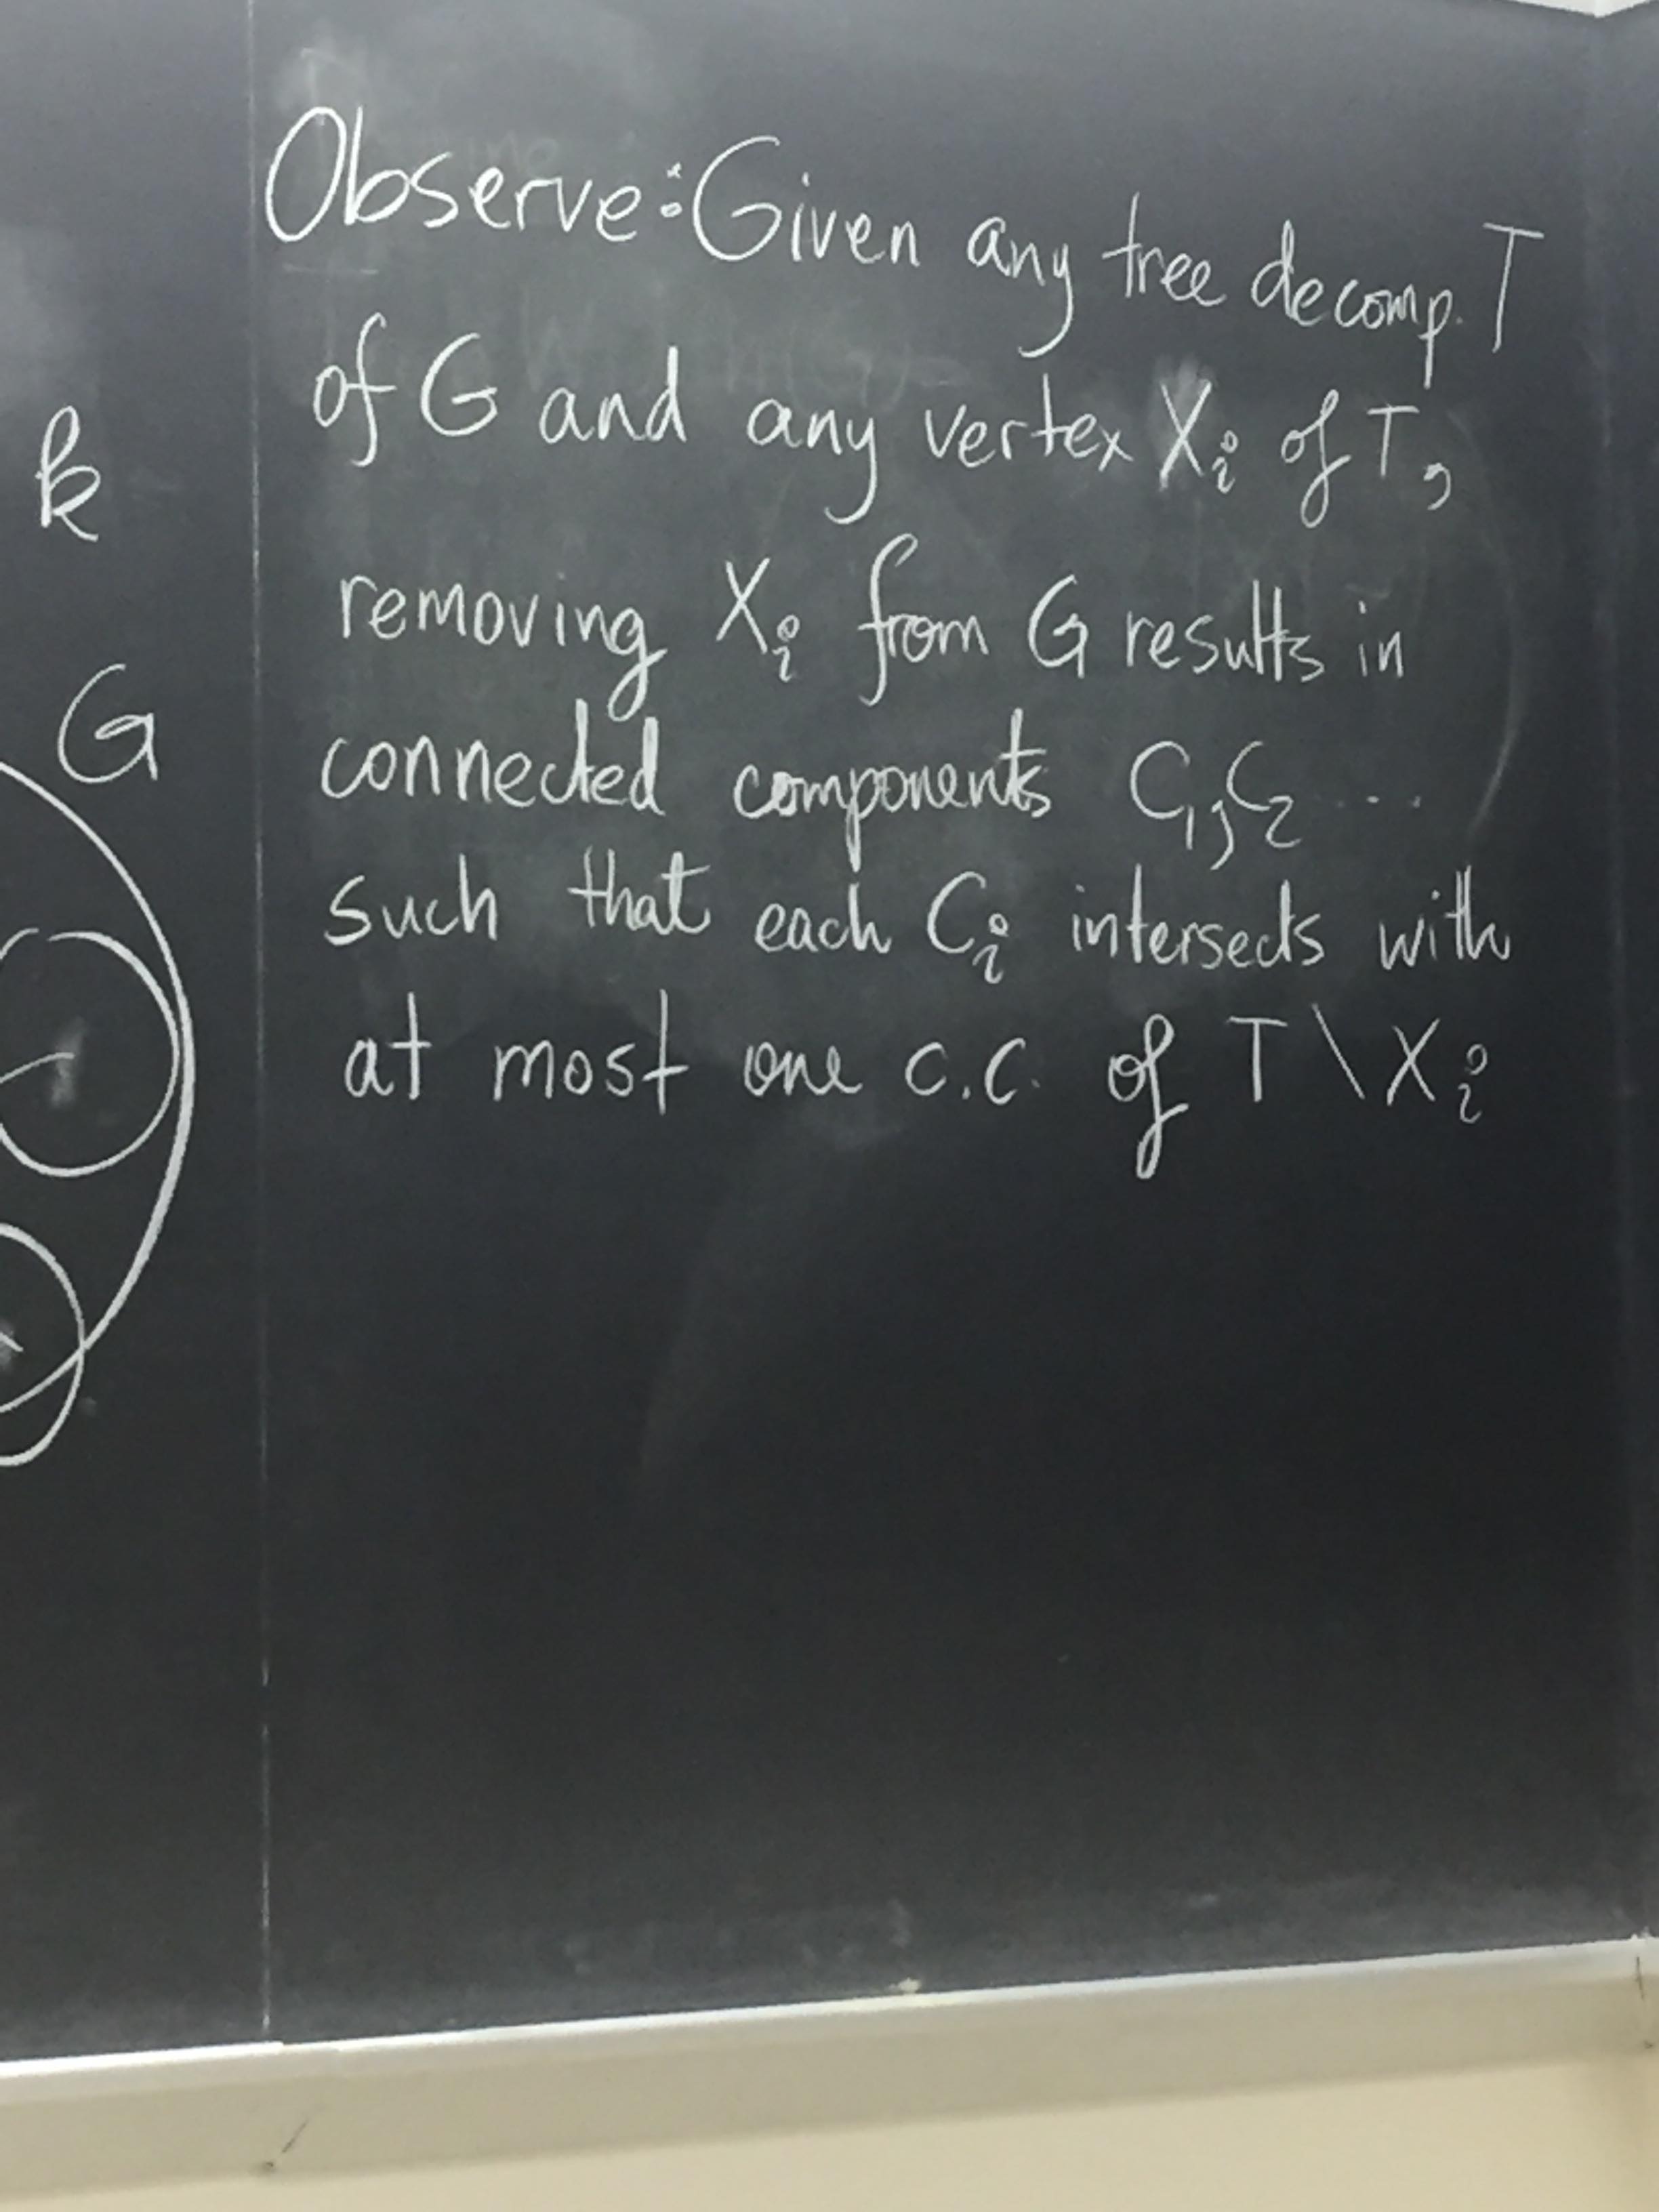 Observe: Given any tree decomp. T
of G and any vertex Xi of T,
removing Xi from G results in
connected components C1, C2 ...
such that each Ci intersects with
at most one c.c. of T \ Xi
k
G